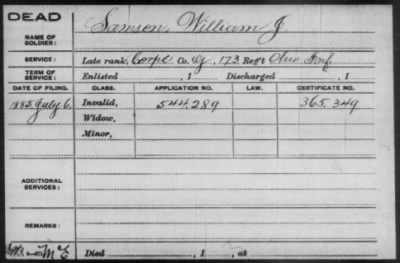 DEAD
NAME OF SOLDIER: Samson, William J
SERVICE: Late rank, Corpl Co. G, 173 Reg't Ohio Inf.
TERM OF SERVICE: Enlisted , 1 Discharged , 1
DATE OF FILING. CLASS. APPLICATION NO. LAW. CERTIFICATE NO.
1885, July 6, Invalid, 544,289 365,349
Widow,
Minor,
ADDITIONAL SERVICES:
REMARKS:
Died , 1 , at